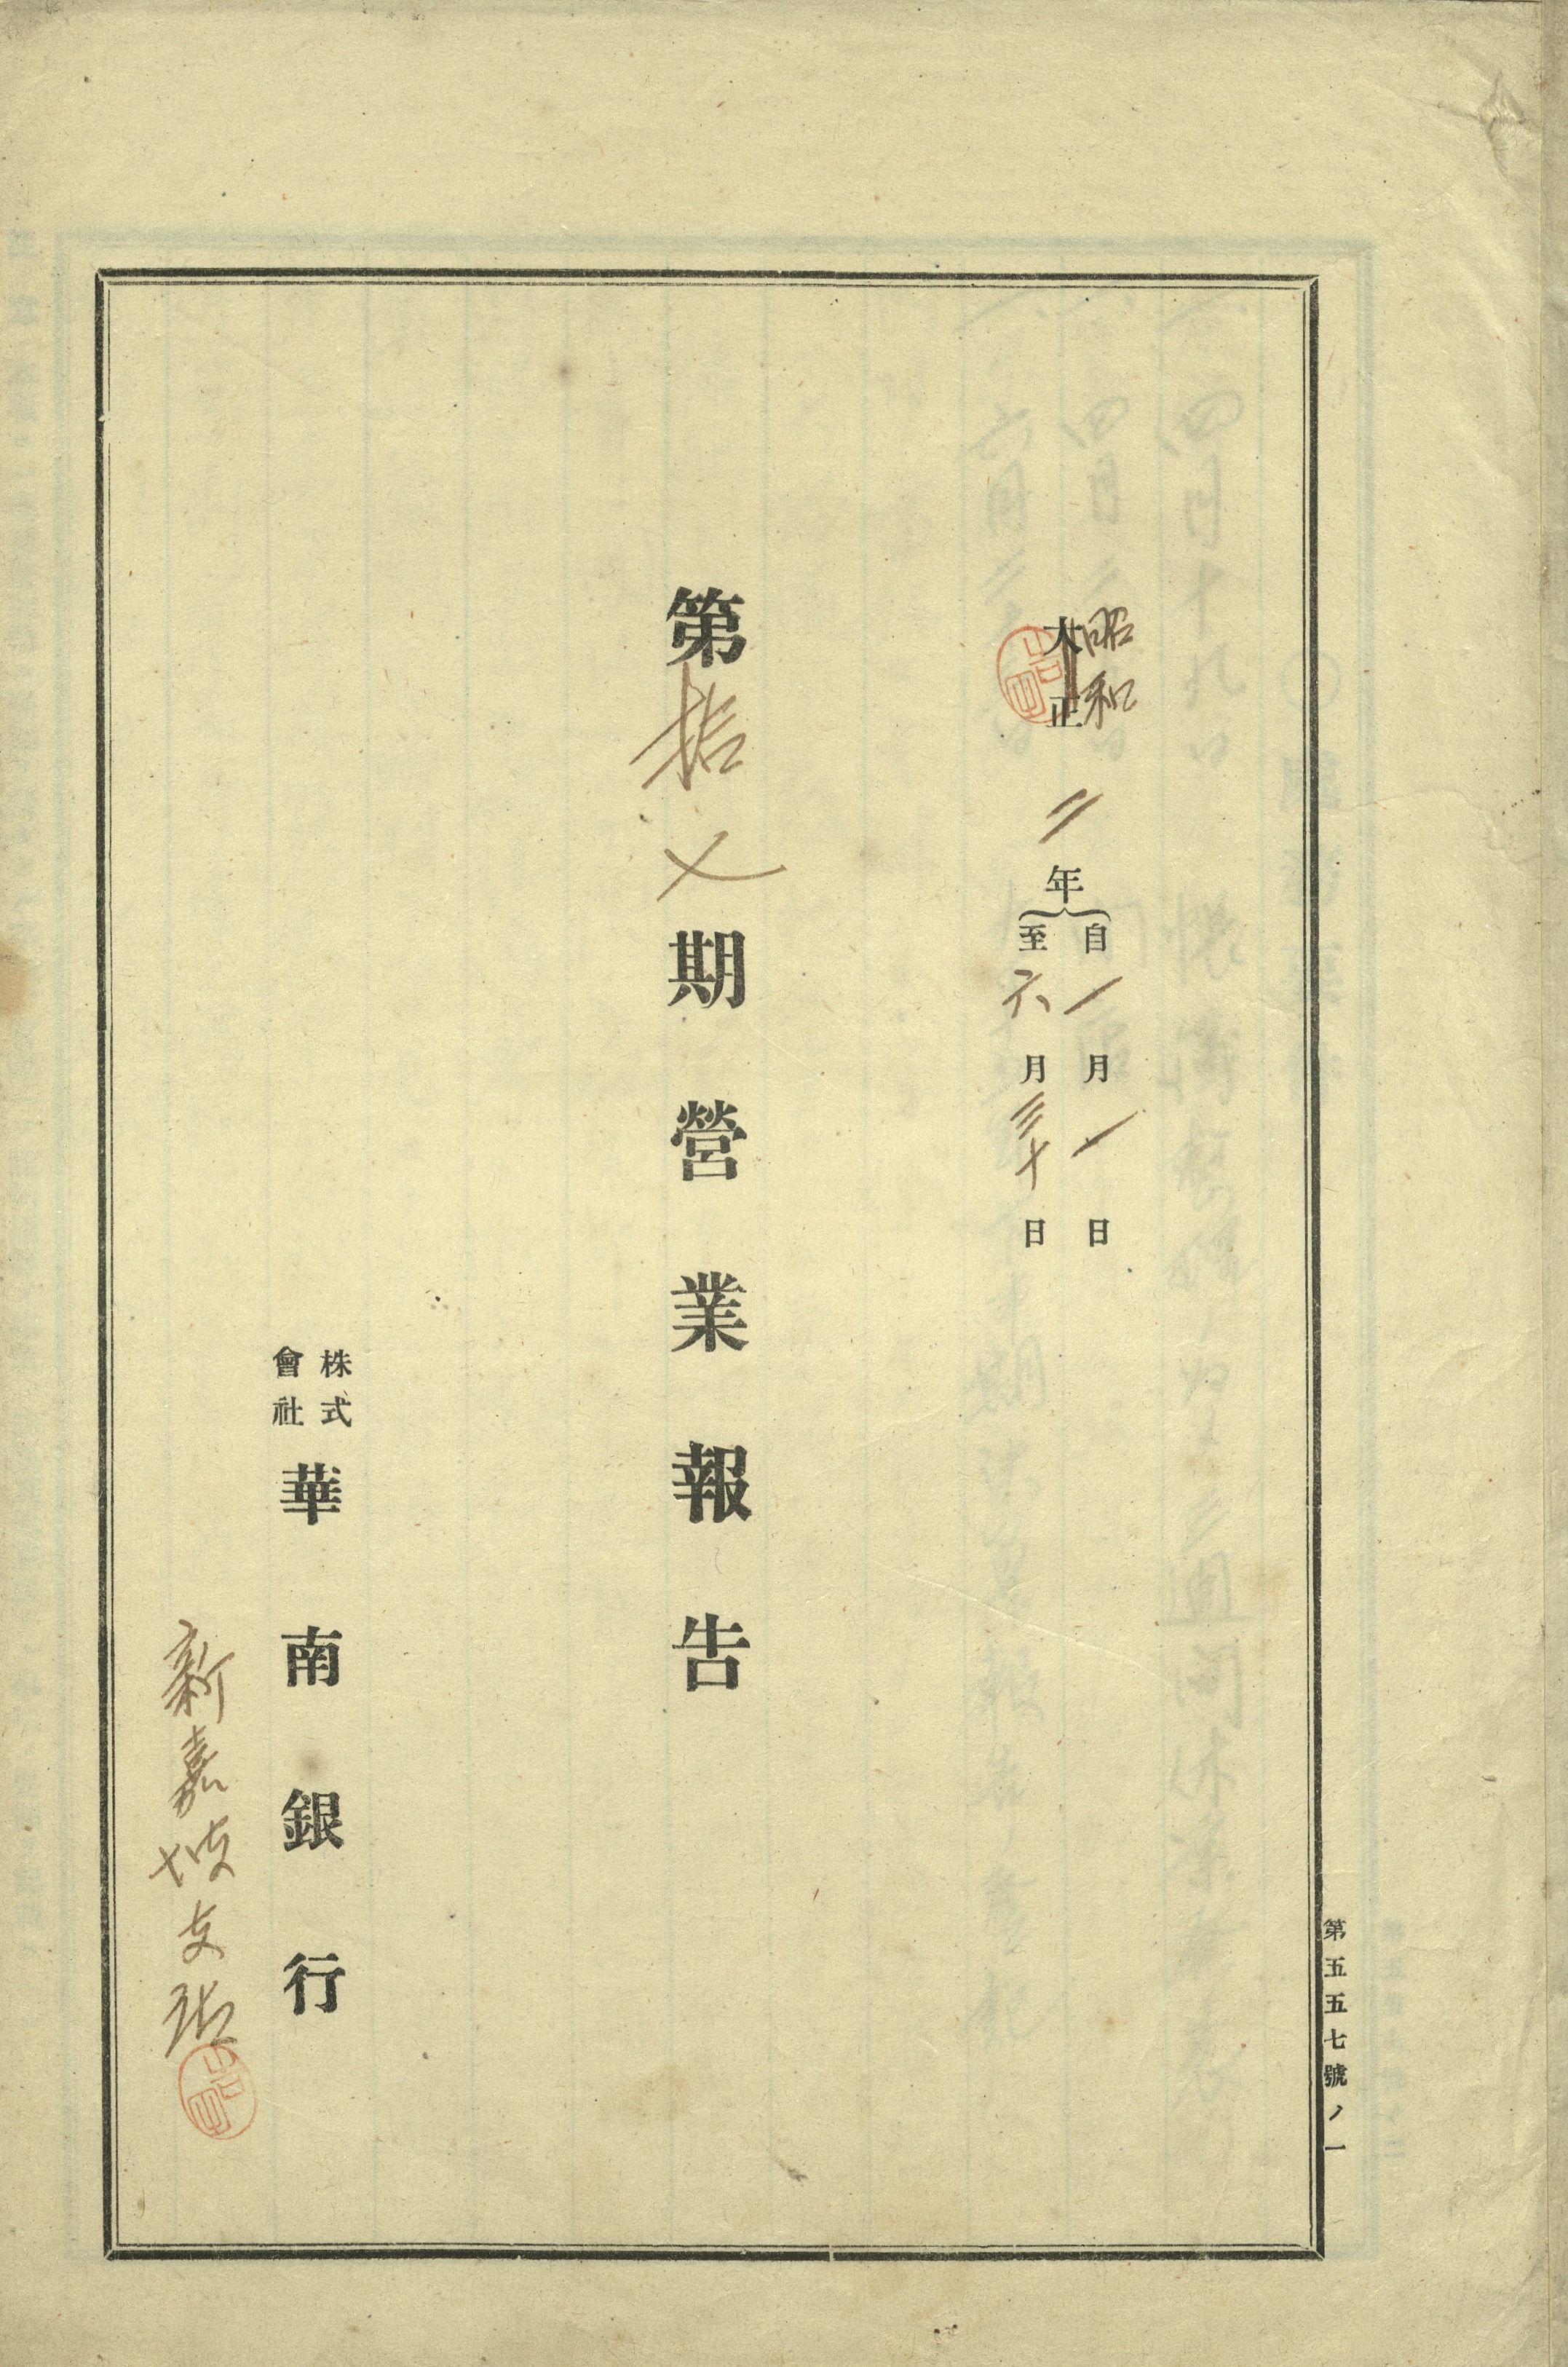 第五五七號ノ一
昭和
大正
二年
自一月一日
至六月三十日
第拾七期營業報告
株式
會社
華南銀行
新嘉坡支店